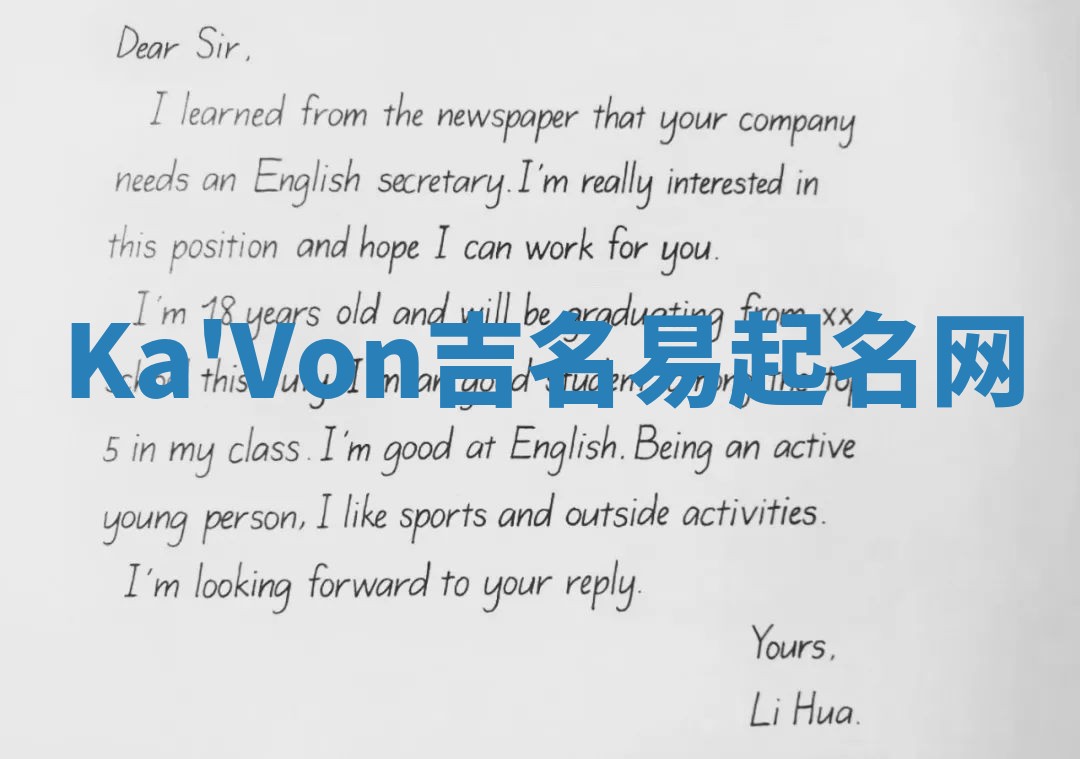 Dear Sir,
I learned from the newspaper that your company
needs an English secretary. I'm really interested in
this position and hope I can work for you.
I'm 18 years old and will be graduating from xx
Ka'Von吉名易起名网
school this July. I'm a good student among the top
5 in my class. I'm good at English. Being an active
young person, I like sports and outside activities.
I'm looking forward to your reply.
Yours,
Li Hua.